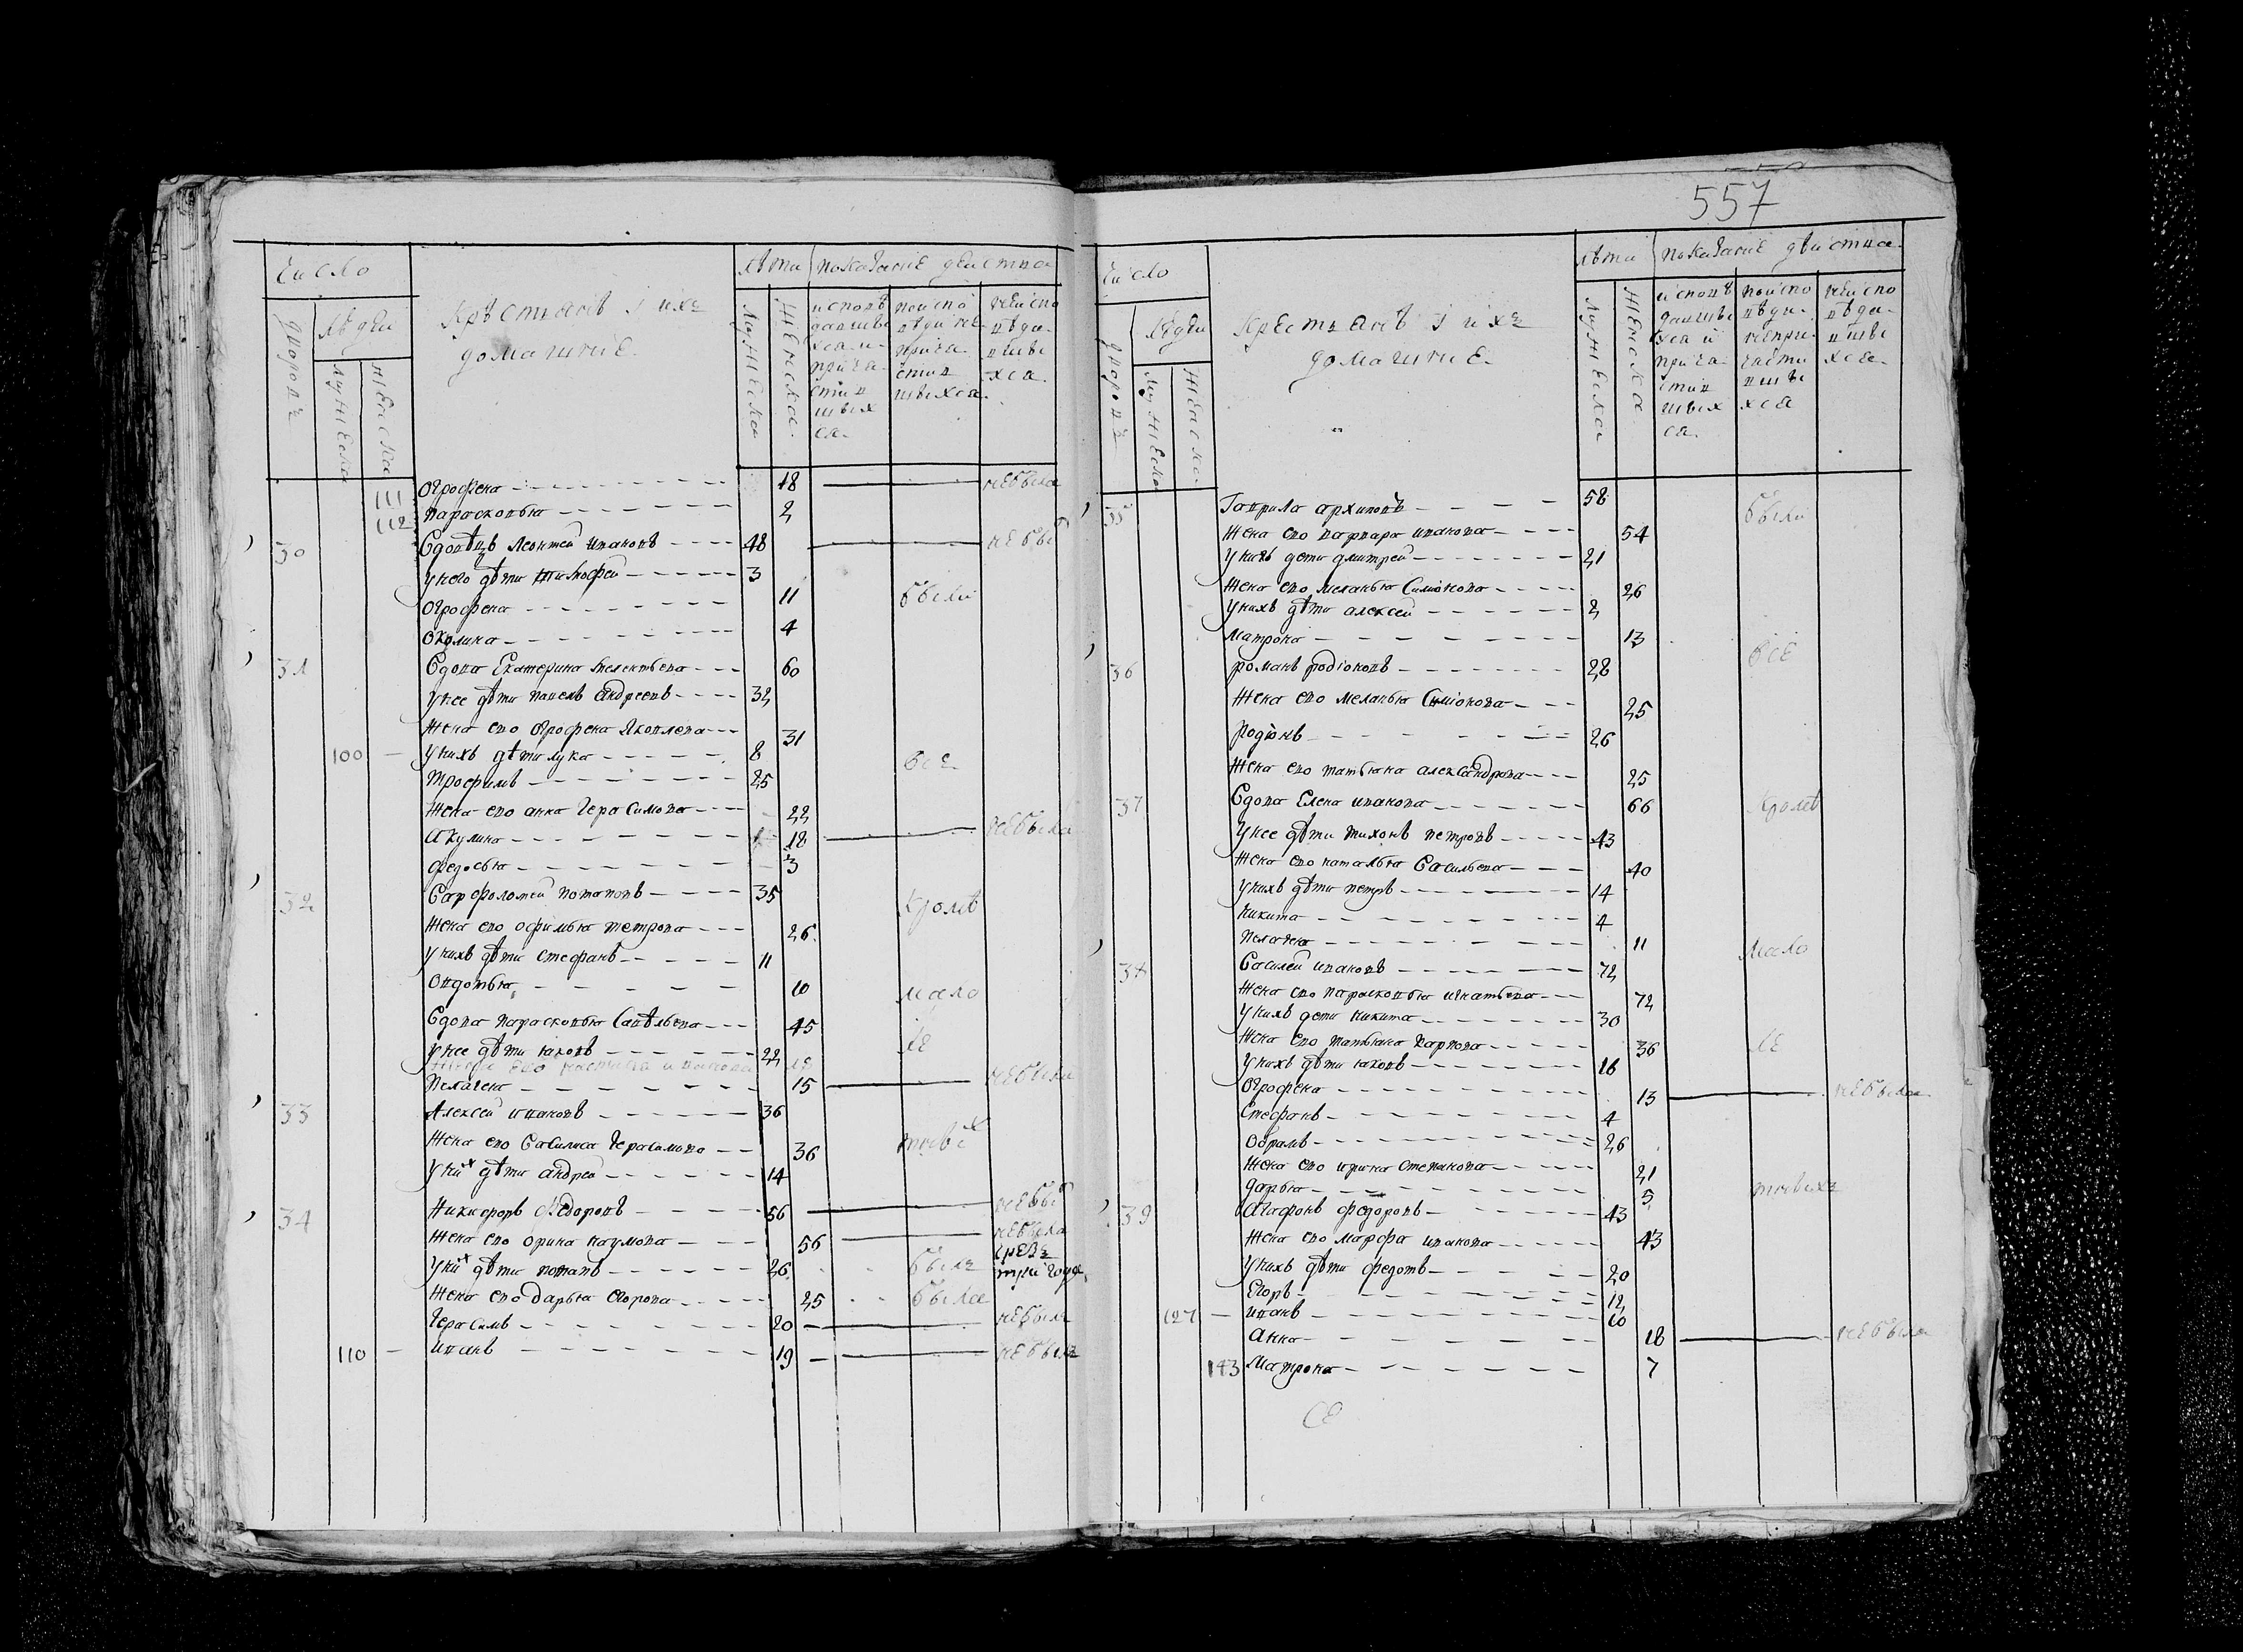 557
Число
Крѣстьянѣ і ихъ
домашние
лѣта
показание действа
дворовъ
людеи
мужеска
женска
мужеска
женска
исповѣ
давшы
хся и
прича
стив
шых
ся
поиспо
вѣди не
прича
стив
шыхся
неиспо
вѣда
вшы
хся
111 Огрофена 18 небыла
112 Парасковья 2
30 Вдовѣцъ Леонтей Ивановъ 48 небы
у него дѣти Тимофей 3
Огрофена 11 были
Окулина 4
31 Вдова Екатерина 60
у нее дѣти Павелъ Андреевъ 32
Жена ево Огрофена Яковлева 31
100 у нихъ дѣти Лука 8
Трофимъ 25 все
Жена ево Анна Герасимова 22
Акулина 18 небыла
Федосья 3
32 Варфоломей Потаповъ 35 кромѣ
Жена ево Офимья Петрова 26
у нихъ дѣти Стефанъ 11
Овдотья 10 мало
Вдова Парасковья Савѣльева 45 ле
у нее дѣти Яковъ 22
Жена ево Ивановна 18
Пелагея 15 небыли
33 Алексей Ивановъ 36
Жена ево Василиса Герасимова 36 тных
у них дѣти Андрей 14
34 Никифоръ Федоровъ 56 небы
Жена ево Орина Наумова 56 небыла
у них дѣти Потапъ 26 былъ чрезъ три года
Жена ево Дарья Егорова 25 была
Герасимъ 20 небылъ
110 Иванъ 19 небылъ
Число
Крестьянѣ і ихъ
домашние
лѣта
показание дѣиства
дворовъ
людеи
мужеска
женска
мужеска
женска
исповѣ
давшы
хся и
прича
стив
шых
ся
поиспо
вѣди
непри
части
вшы
хся
неиспо
вѣда
вшы
хся
35 Гаврила Архиповъ 58 были
Жена ево Варвара Иванова 54
у нихъ дети Дмитрей 21
Жена ево Меланья Симіонова 26
у нихъ дѣти Алексей 2
Матрона 13 все
36 Романъ Родіоновъ 28
Жена ево Меланья Симіонова 25
Родіонъ 26
Жена ево Татьяна Александрова 25
37 Вдова Елена Иванова 66 кромѣ
у нее дѣти Тихонъ Петровъ 43
Жена ево Наталья Васильева 40
у нихъ дѣти Петръ 14
Никита 4
Пелагея 11 мало
38 Василей Ивановъ 72
Жена ево Парасковья Игнатьева 72
у нихъ дети Никита 30
Жена ево Татьяна Карпова 36 ле
у нихъ дѣти Яковъ 16
Огрофена 13 небыла
Стефанъ 4
Обрамъ 26
Жена ево Ирина Степанова 21
Дарья 5 тныхъ
39 Агафонъ Федоровъ 43
Жена ево Марфа Иванова 43
у нихъ дѣти Федотъ 20
Егоръ 12
127 Иванъ 10
Анна 18 небыла
143 Матрона 7
се